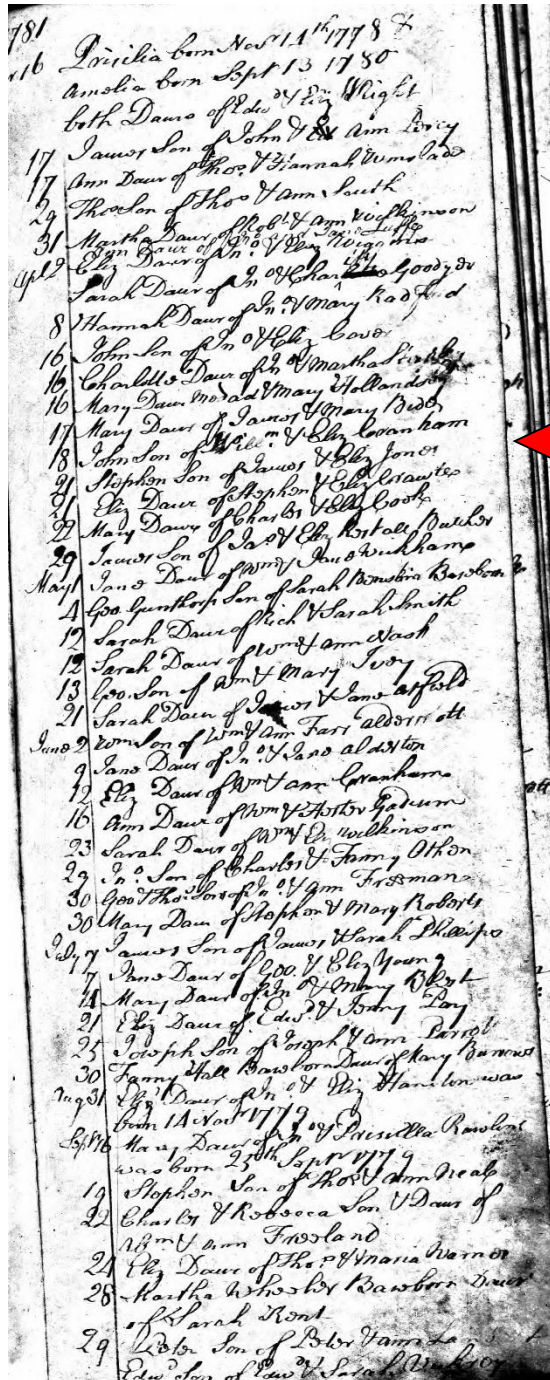 1781
16 Pricilia born Nov 14th 1778 &
Amelia born Sept 13 1780
both Daurs of Edwd & Eliz Wright
17 James Son of John & Ann Percy
17 Ann Daur of Thos & Hannah
29 Thos Son of Thos & Ann South
31 Martha Daur of Robt & Ann Wilkinson
Ann Daur of Jno and Jane
Apl 2 Eliz Daur of Jno & Eliz Wiggins
Sarah Daur of Jno & Goodyer
8 Hannah Daur of Jno & Mary Radford
16 John Son of Jno & Eliz Caver
16 Charlotte Daur of Jno & Martha
16 Mary Daur & Mary
17 Mary Daur of James & Mary Bide
18 John Son of Willm & Eliz Cranham
21 Stephen Son of James & Eliz Jones
21 Eliz Daur of Stephen & Eliz
22 Mary Daur of Charles & Eliz Cook
29 James Son of Jas & Eliz Restall Butcher
May 1 Jane Daur of Wm & Jane Wickham
4 Geo. Gunthorp Son of Sarah
12 Sarah Daur of Rich & Sarah Smith
12 Sarah Daur of Wm & Ann Nash
13 Geo. Son of Wm & Mary Ivey
21 Sarah Daur of James & Jane Atfield
June 2 Wm Son of Wm & Ann Farr
9 Jane Daur of Jno & Jane Alderton
12 Eliz Daur of Wm & Ann Cranham
16 Ann Daur of Wm & Hester
23 Sarah Daur of Wm & Eliz Wilkinson
29 Jno. Son of Charles & Fanny Othen
30 Geo & Thos Sons of Jno & Ann Freeman
30 Mary Daur of Stephen & Mary Roberts
July 7 James Son of James & Sarah Phillips
7 Jane Daur of Geo. & Eliz Young
14 Mary Daur of Jno & Mary
21 Eliz Daur of Edwd & Jenny Lay
25 Joseph Son of Joseph & Ann Parrot
30 Fanny Hall Baseborn Daur of Mary
Aug 31 Eliz Daur of Jno & Eliz Hamilton was
born 14 Novr 1779
Sept 16 Mary Daur of Jno & Priscilla Rawlins
was born 25th Septr 1779
19 Stephen Son of Thos & Ann Neal
22 Charles & Rebecca Son & Daur of
Wm & Ann Freeland
24 Eliz Daur of Thos & Maria Warner
28 Martha Wheeler Baseborn Daur
of Sarah Kent
29 Peter Son of Peter & Ann
Edwd Son of Edwd & Sarah